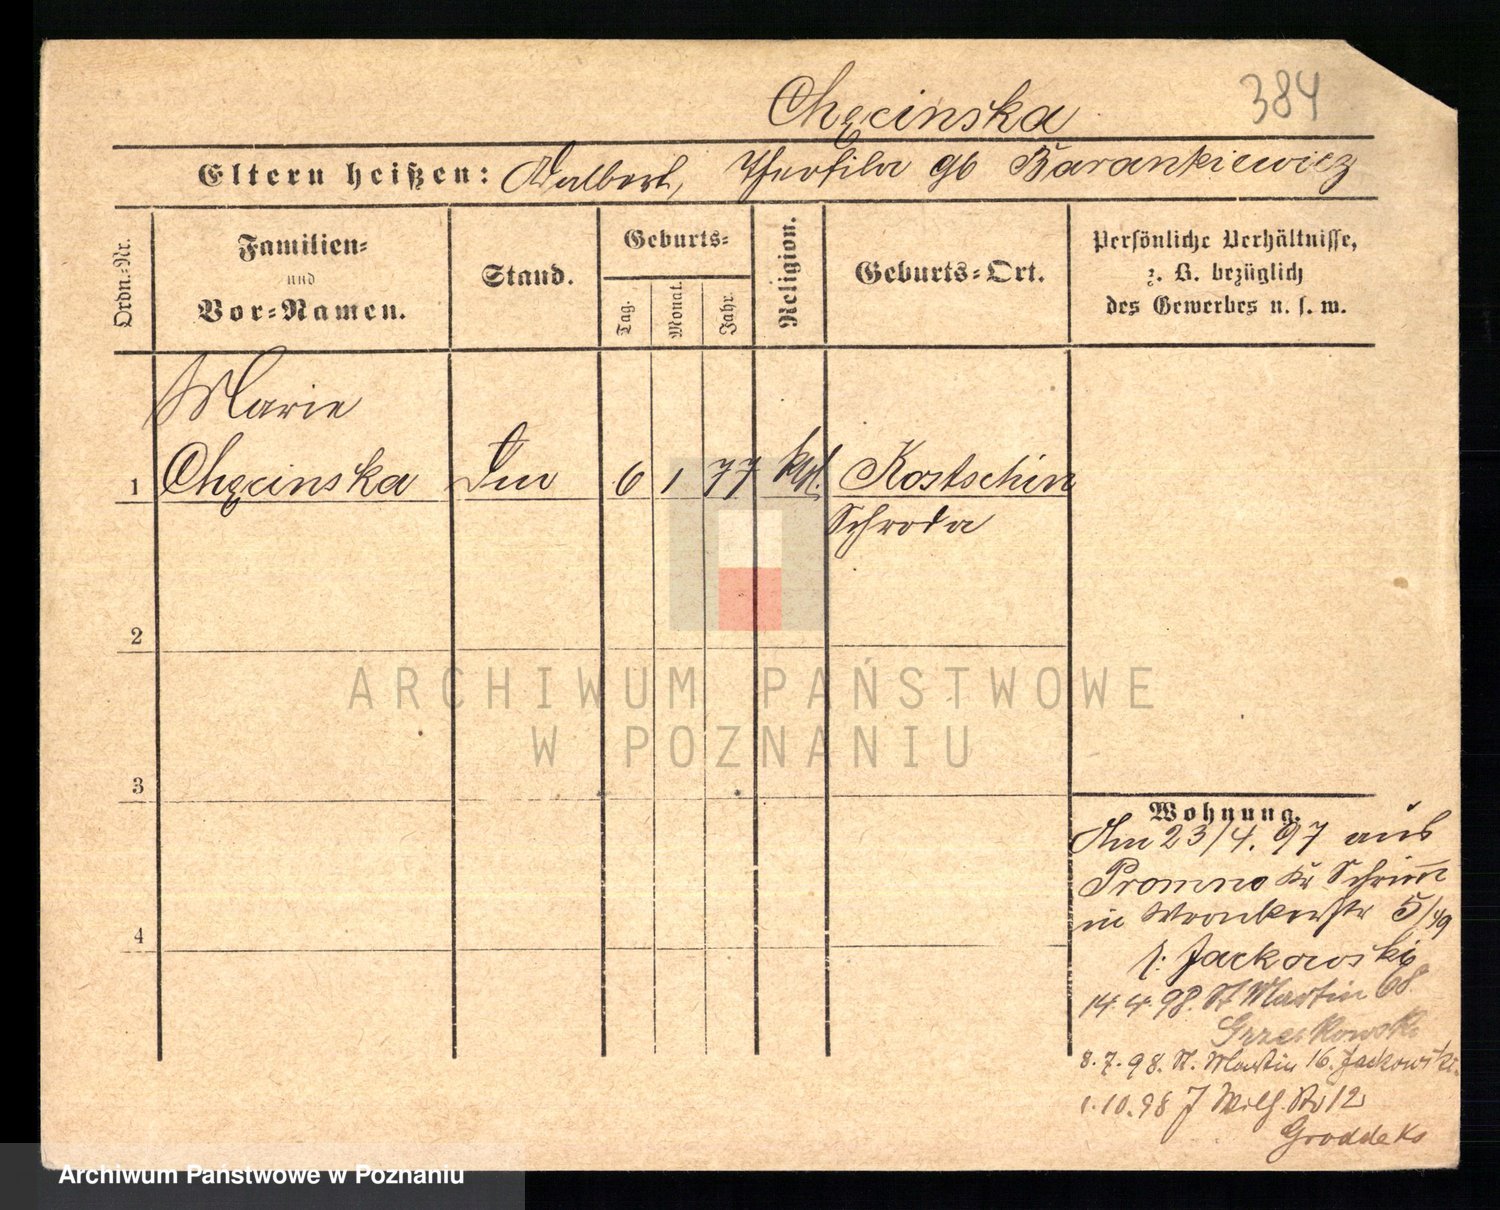 Chęcinska 384
Eltern heißen: Adalbert, Theofila gb Barankiewicz
Ordn.=Nr.
Familien=
und
Vor=Namen.
Stand.
Geburts=
Tag.
Monat.
Jahr.
Religion.
Geburts=Ort.
Persönliche Verhältnisse,
z. B. bezüglich
des Gewerbes u. s. w.
Marie
1 Chęcinska 6 1 77 kth. Kostschin
Schroda
2
3
4
Wohnung.
Am 23/4. 97 aus
Promno Kr Schrimm
in Wronkerstr 5/49
b: Jackowski
14.4.98. St Martin 68
Grzeskowski
8.7.98. St. Martin 16. Jackowski.
1.10.98 Wilh. Str 12
Groddeks
ARCHIWUM PAŃSTWOWE
W POZNANIU
Archiwum Państwowe w Poznaniu